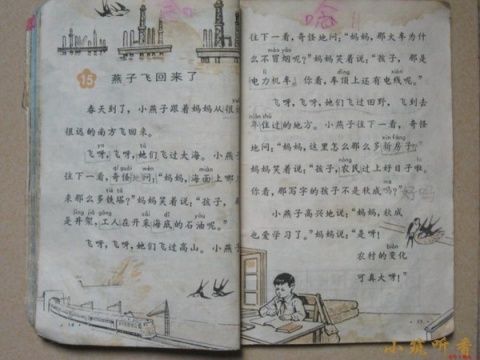 15
燕子飞回来了
春天到了，小燕子跟着妈妈从很
很远的南方飞回来。
飞呀，飞呀，她们飞过大海。小燕
往下一看，奇怪地问：“妈妈，海面上哪
来那么多铁塔？”妈妈笑着说：“孩子，
是井架，工人在开采海底的石油呢。”
飞呀，飞呀，她们飞过高山。小燕
往下一看，奇怪地问：“妈妈，那火车为什
么不冒烟呢？”妈妈笑着说：“孩子，那是
电力机车。你看，车顶上还有电线呢。”
飞呀，飞呀，她们飞过田野，飞到去
年住过的地方。小燕子往下一看，奇怪
地问：“妈妈，这里怎么那么多新房子？”
妈妈笑着说：“孩子，农民过上好日子啦。
你看，那写字的孩子不是秋成吗？”
小燕子高兴地说：“妈妈，秋成
也爱学习了。”妈妈说：“是呀！
农村的变化
可真大呀！”
小孩听看